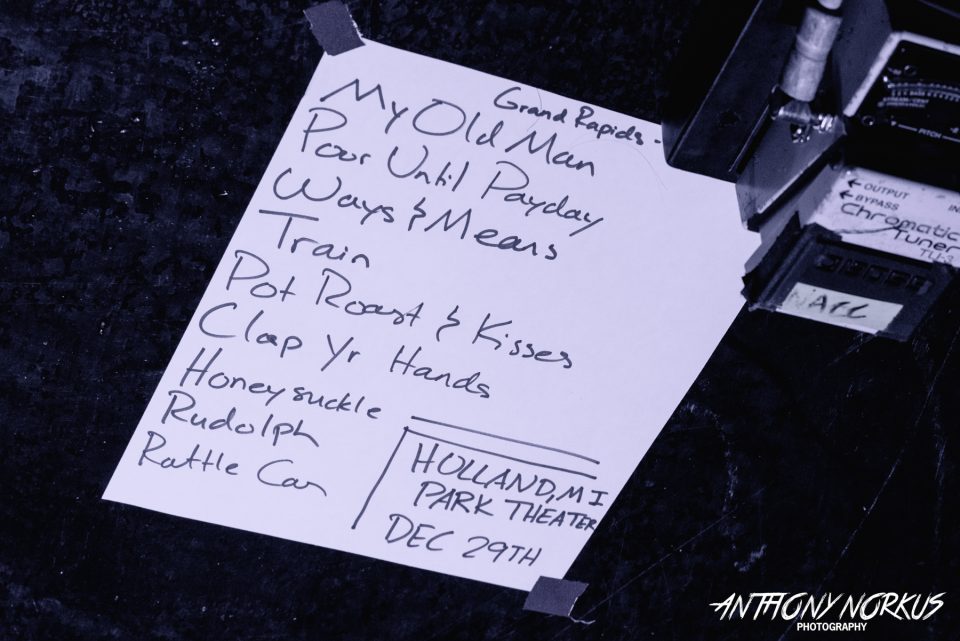 Grand Rapids -
My Old Man
Poor Until Payday
Ways & Means
Train
Pot Roast & Kisses
Clap Yr Hands
Honeysuckle
Rudolph
Rattle Can
HOLLAND, MI
PARK THEATER
DEC 29TH
PITCH
← OUTPUT
← BYPASS
Chromatic
Tuner
TU-3
ANTHONY NORKUS
PHOTOGRAPHY